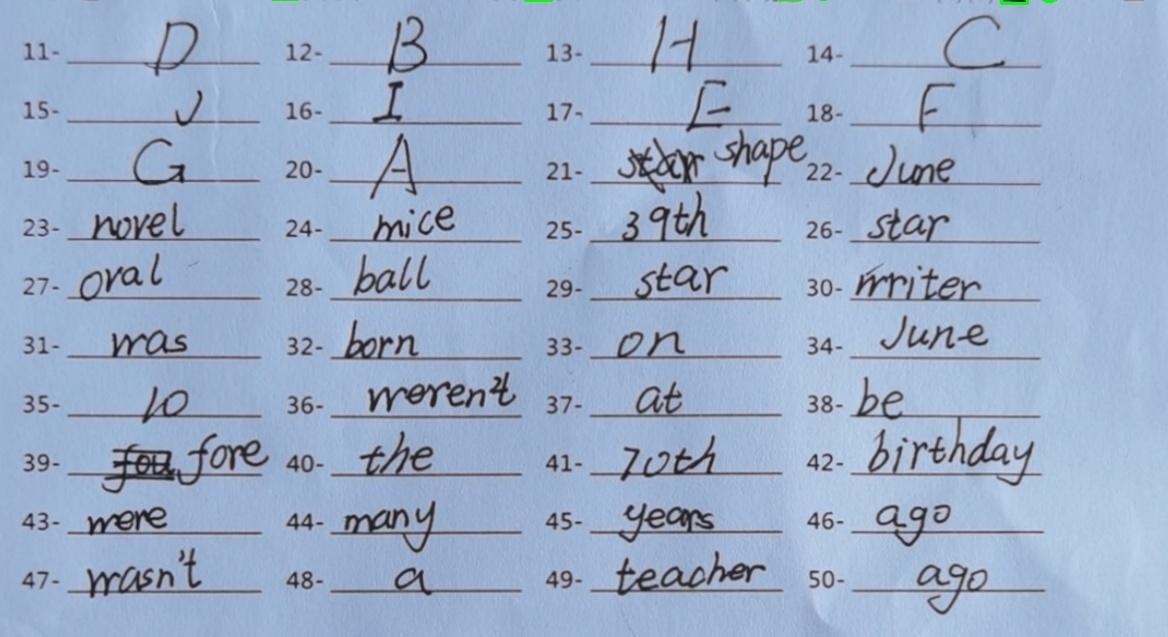 11- D 12- B 13- H 14- C
15- J 16- I 17- E 18- F
19- G 20- A 21- shape 22- June
23- novel 24- mice 25- 39th 26- star
27- oval 28- ball 29- star 30- writer
31- was 32- born 33- on 34- June
35- 10 36- weren't 37- at 38- be
39- fore 40- the 41- 70th 42- birthday
43- were 44- many 45- years 46- ago
47- wasn't 48- a 49- teacher 50- ago